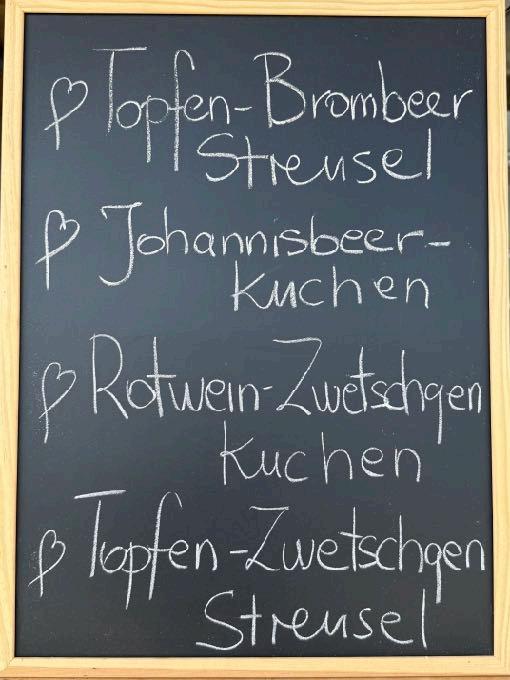 Topfen-Brombeer
Streusel
Johannisbeer-
kuchen
Rotwein-Zwetschgen
kuchen
Topfen-Zwetschgen
Streusel